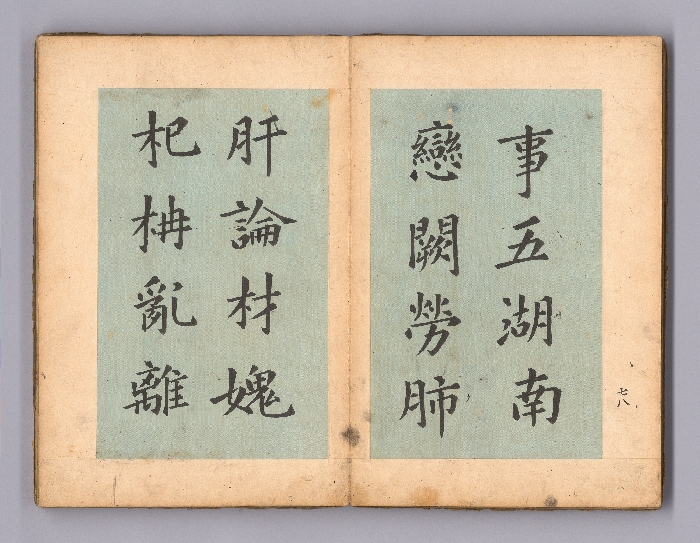 事五湖南
戀闕勞肺
肝論材愧
杞柟亂離
七八